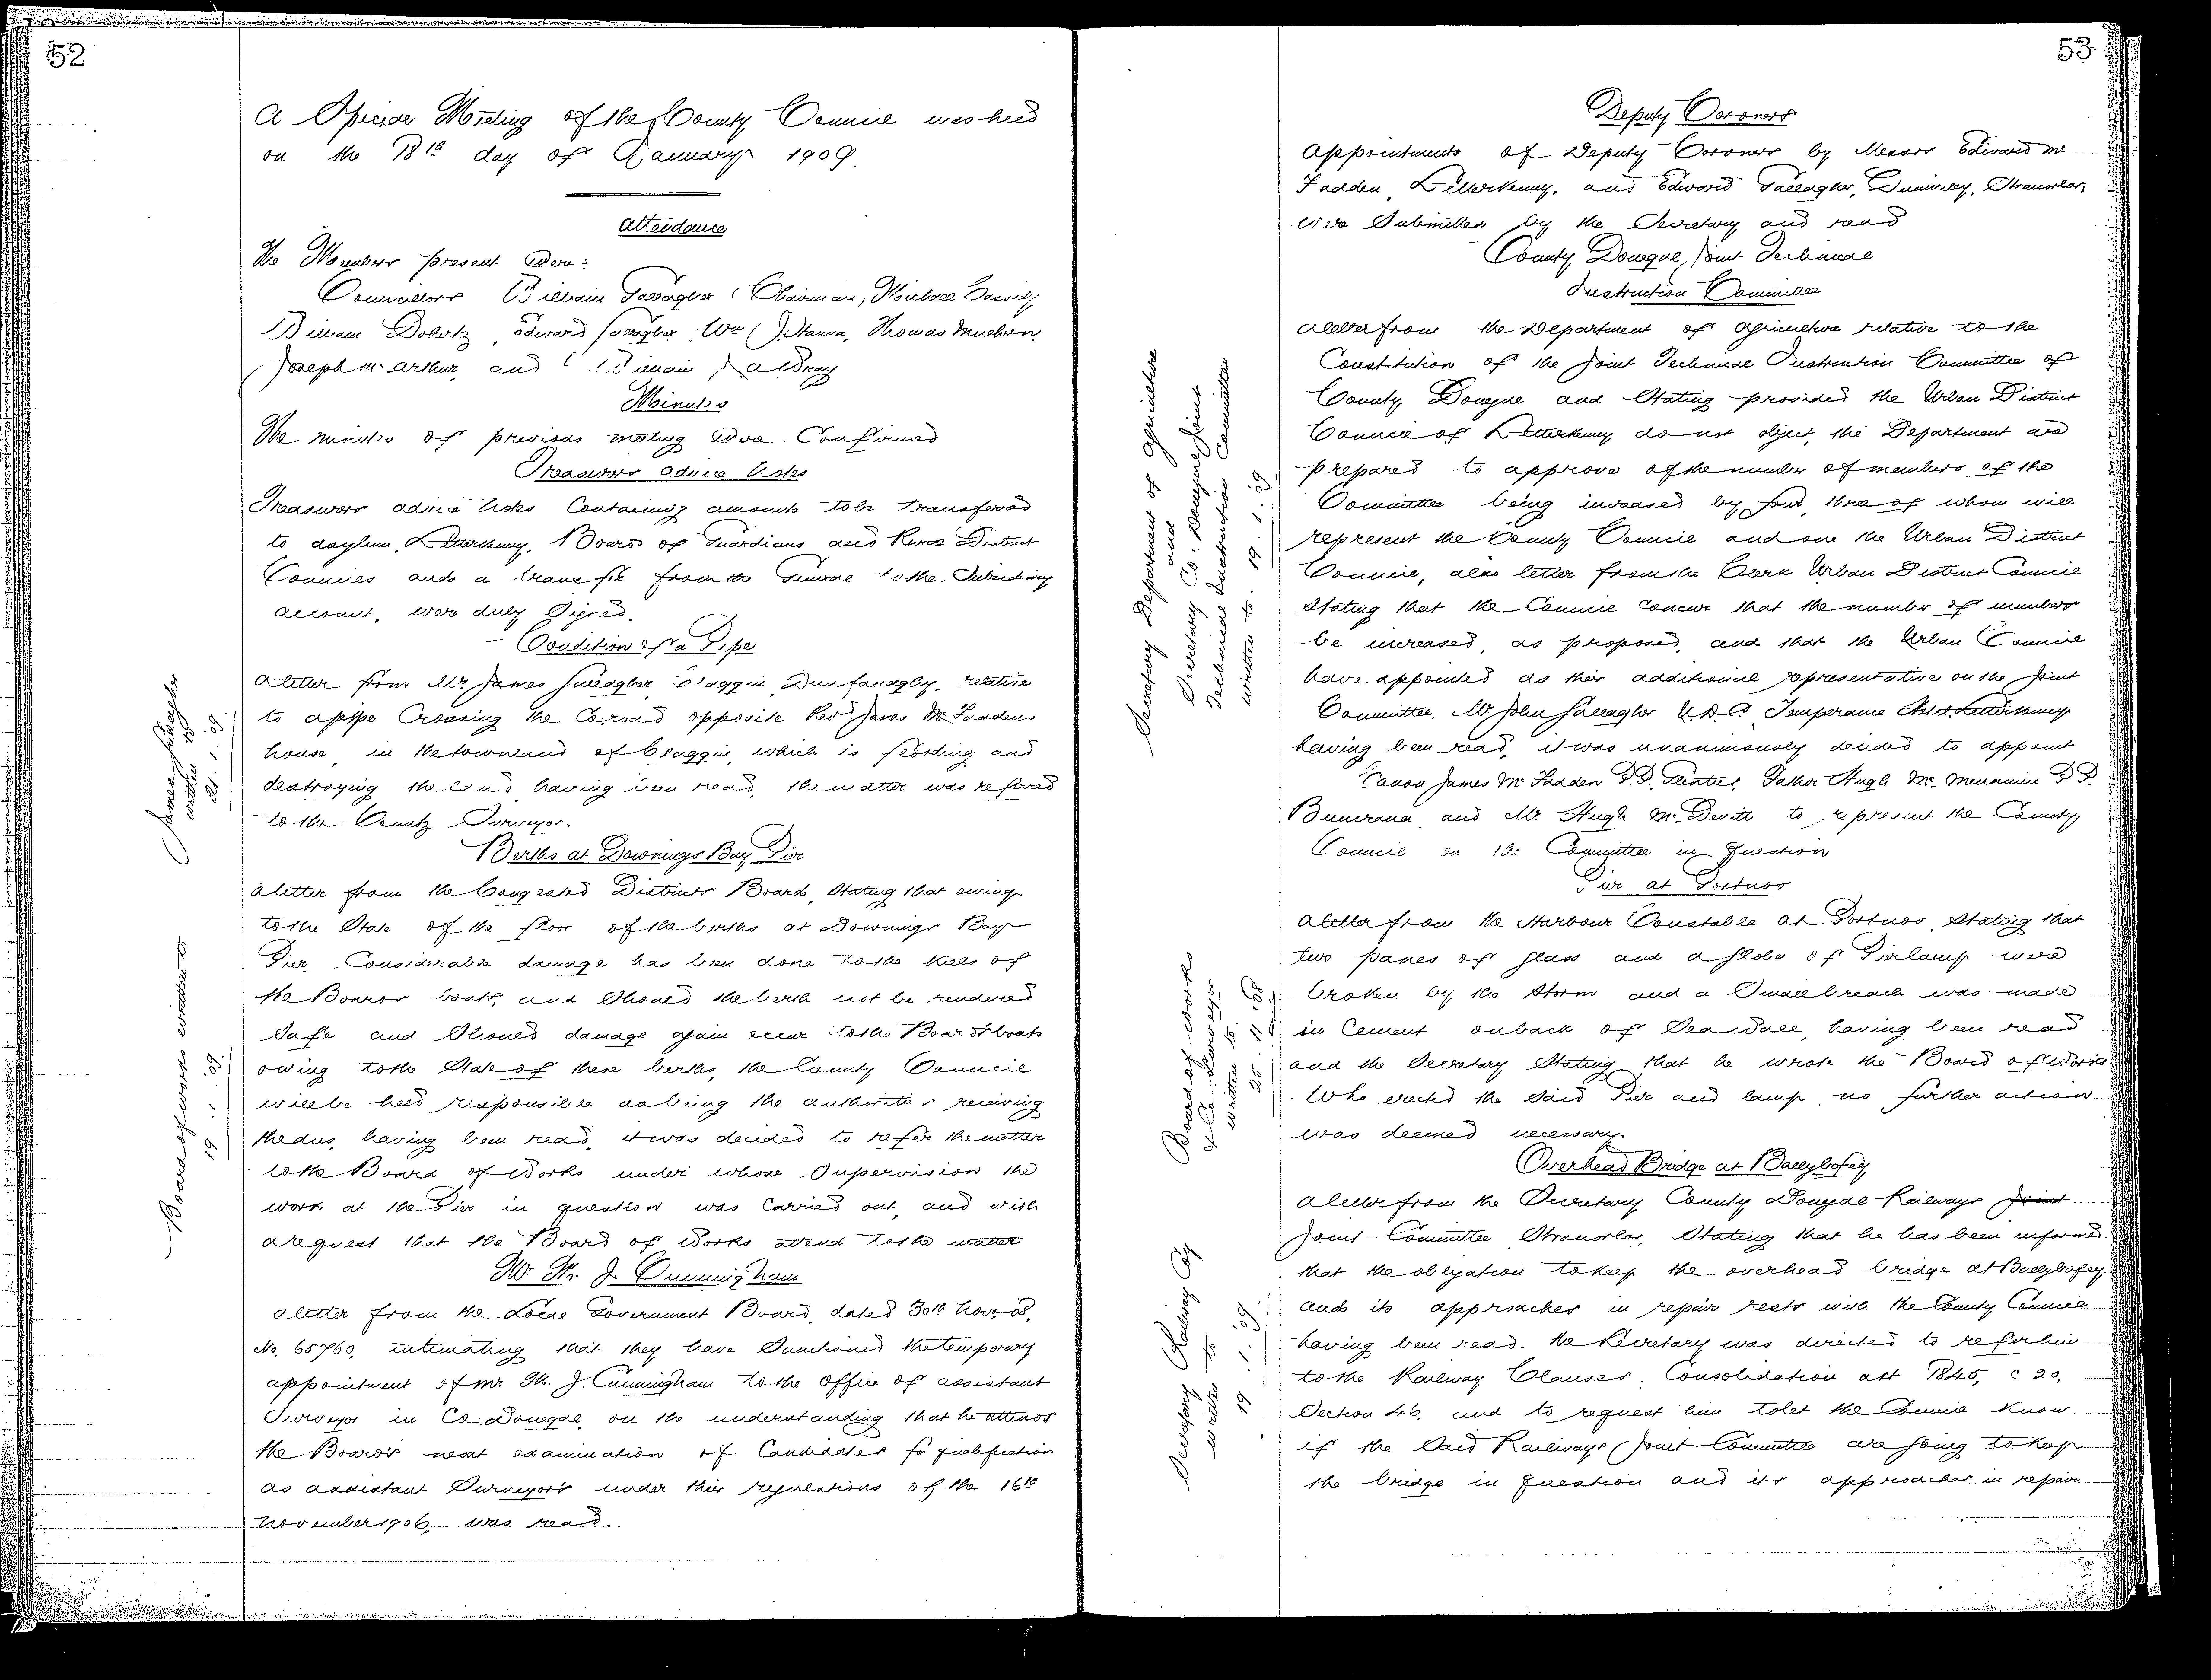 52
A Special Meeting of the County Council was held
on the 18th day of January 1909.
Attendance
The Members present were:
Councillors William Gallagher (Chairman), Michael Cassidy
William Doherty, Edward Gallagher, Wm J. Hanna, Thomas
Joseph McArthur, and William
Minutes
The minutes of previous meeting were Confirmed
Treasurers advice lists
Treasurers advice lists Containing amounts to be transferred
to asylum, Letterkenny, Boards of Guardians and Rural District
Councils and a transfer from the General to the Subsidiary
account, were duly Signed.
Condition of a Pipe
A letter from Mr. James Gallagher Claggin Dunfanaghy, relative
to a pipe Crossing the Co. road opposite Revd. James McFaddens
house, in the townland of Claggin, which is flooding and
destroying the land having been read, the matter was referred
to the County Surveyor.
James Gallagher
written to
21. 1. 09.
Berths at Downings Bay Pier
A letter from the Congested Districts Board, Stating that owing
to the State of the floor of the berths at Downings Bay
Pier Considerable damage has been done to the keels of
the Boards boats, and Should the berth not be rendered
Safe and Should damage again occur to the Boards boats
owing to the State of these berths, the County Council
will be held responsible as being the authorities receiving
the dues, having been read, it was decided to refer the matter
to the Board of Works under whose Supervision the
work at the Pier in question was Carried out, and with
a request that the Board of Works attend to the matter
Board of works written to
19. 1. 09.
Mr. M. J. Cunningham
A letter from the Local Government Board, dated 30th Novr. 08,
No. 65760, intimating that they have Sanctioned the temporary
appointment of Mr M. J. Cunningham to the Office of assistant
Surveyor in Co. Donegal, on the understanding that he attends
the Board's next examination of Candidates for qualification
as assistant Surveyors under their regulations of the 16th
November 1906, was read.
53.
Deputy Coroners
Appointments of Deputy Coroners by Messrs Edward Mc
Fadden, Letterkenny, and Edward Gallagher, Stranorlar,
were Submitted by the Secretary and read
County Donegal, Joint Technical
Instruction Committee
A letter from the Department of Agriculture relative to the
Constitution of the Joint Technical Instruction Committee of
County Donegal and Stating provided the Urban District
Council of Letterkenny do not object, the Department are
prepared to approve of the number of members of the
Committee being increased by four, three of whom will
represent the County Council and one the Urban District
Council, also letter from the Clerk Urban District Council
Stating that the Council concur that the number of members
be increased, as proposed, and that the Urban Council
have appointed as their additional representative on the Joint
Committee, Mr John Gallagher U.D.C. Temperance Hotel Letterkenny
having been read, it was unanimously decided to appoint
Canon James McFadden P.P. Glenties, Father Hugh Mc. Menamin P.P.
Buncrana, and Mr. Hugh Mc. Devitt to represent the County
Council on the Committee in Question
Secretary Department of Agriculture
and
Secretary Co. Donegal Joint
Technical Instruction Committee
written to. 19. 1. 09.
Pier at Portnoo
A letter from the Harbour Constable at Portnoo, Stating that
two panes of glass and a globe of Pierlamp were
broken by the Storm and a Small breach was made
in Cement on back of Seawall, having been read
and the Secretary Stating that he wrote the Board of Works
Who erected the Said Pier and lamp no further action
was deemed necessary.
Board of works
& Co. Surveyor
written to.
Overhead Bridge at Ballybofey
A letter from the Secretary County Donegal Railways Joint
Joint Committee Stranorlar, Stating that he has been informed
that the obligation to keep the overhead bridge at Ballybofey
and its approaches in repair rests with the County Council
having been read. the Secretary was directed to refer him
to the Railway Clauses Consolidation act 1845, c 20,
Section 46, and to request him to let the Council know
if the Said Railways Joint Committee are going to keep
the bridge in Question and its approaches in repair
Secretary Railway Coy
written to
19. 1. 09.